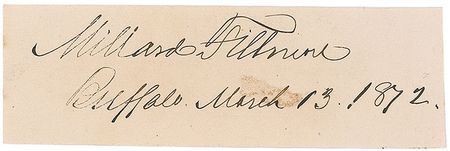 Millard Fillmore
Buffalo. March 13. 1872.